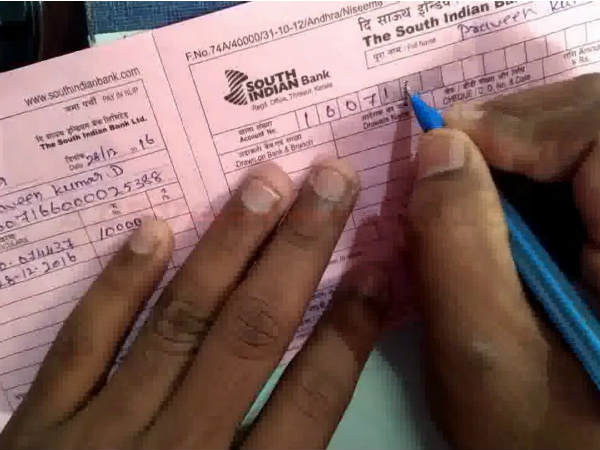 F.No.74A/40000/31-10-12/Andhra/Niseema
www.southindianbank.com
जमा पर्ची PAY IN SLIP
दि साउथ इन्डियन बैंक लिमिटेड
The South Indian Bank Ltd.
दिनांक
Date 28/12 16
aveen Kumar D
0071660000 25388
10000
0-074427
8-12-2016
SOUTH
INDIAN Bank
Regd. Office, Thrissur, Kerala
दि साउथ इन्डिय
The South Indian Ba
पूरा नाम : Full Name Praveen Ku
खाता संख्या
Account No. 1 6 0 7 1
Drawn on Bank & Branch
CHEQUE / D.D. No. & Date
राशि Amount
Rs.